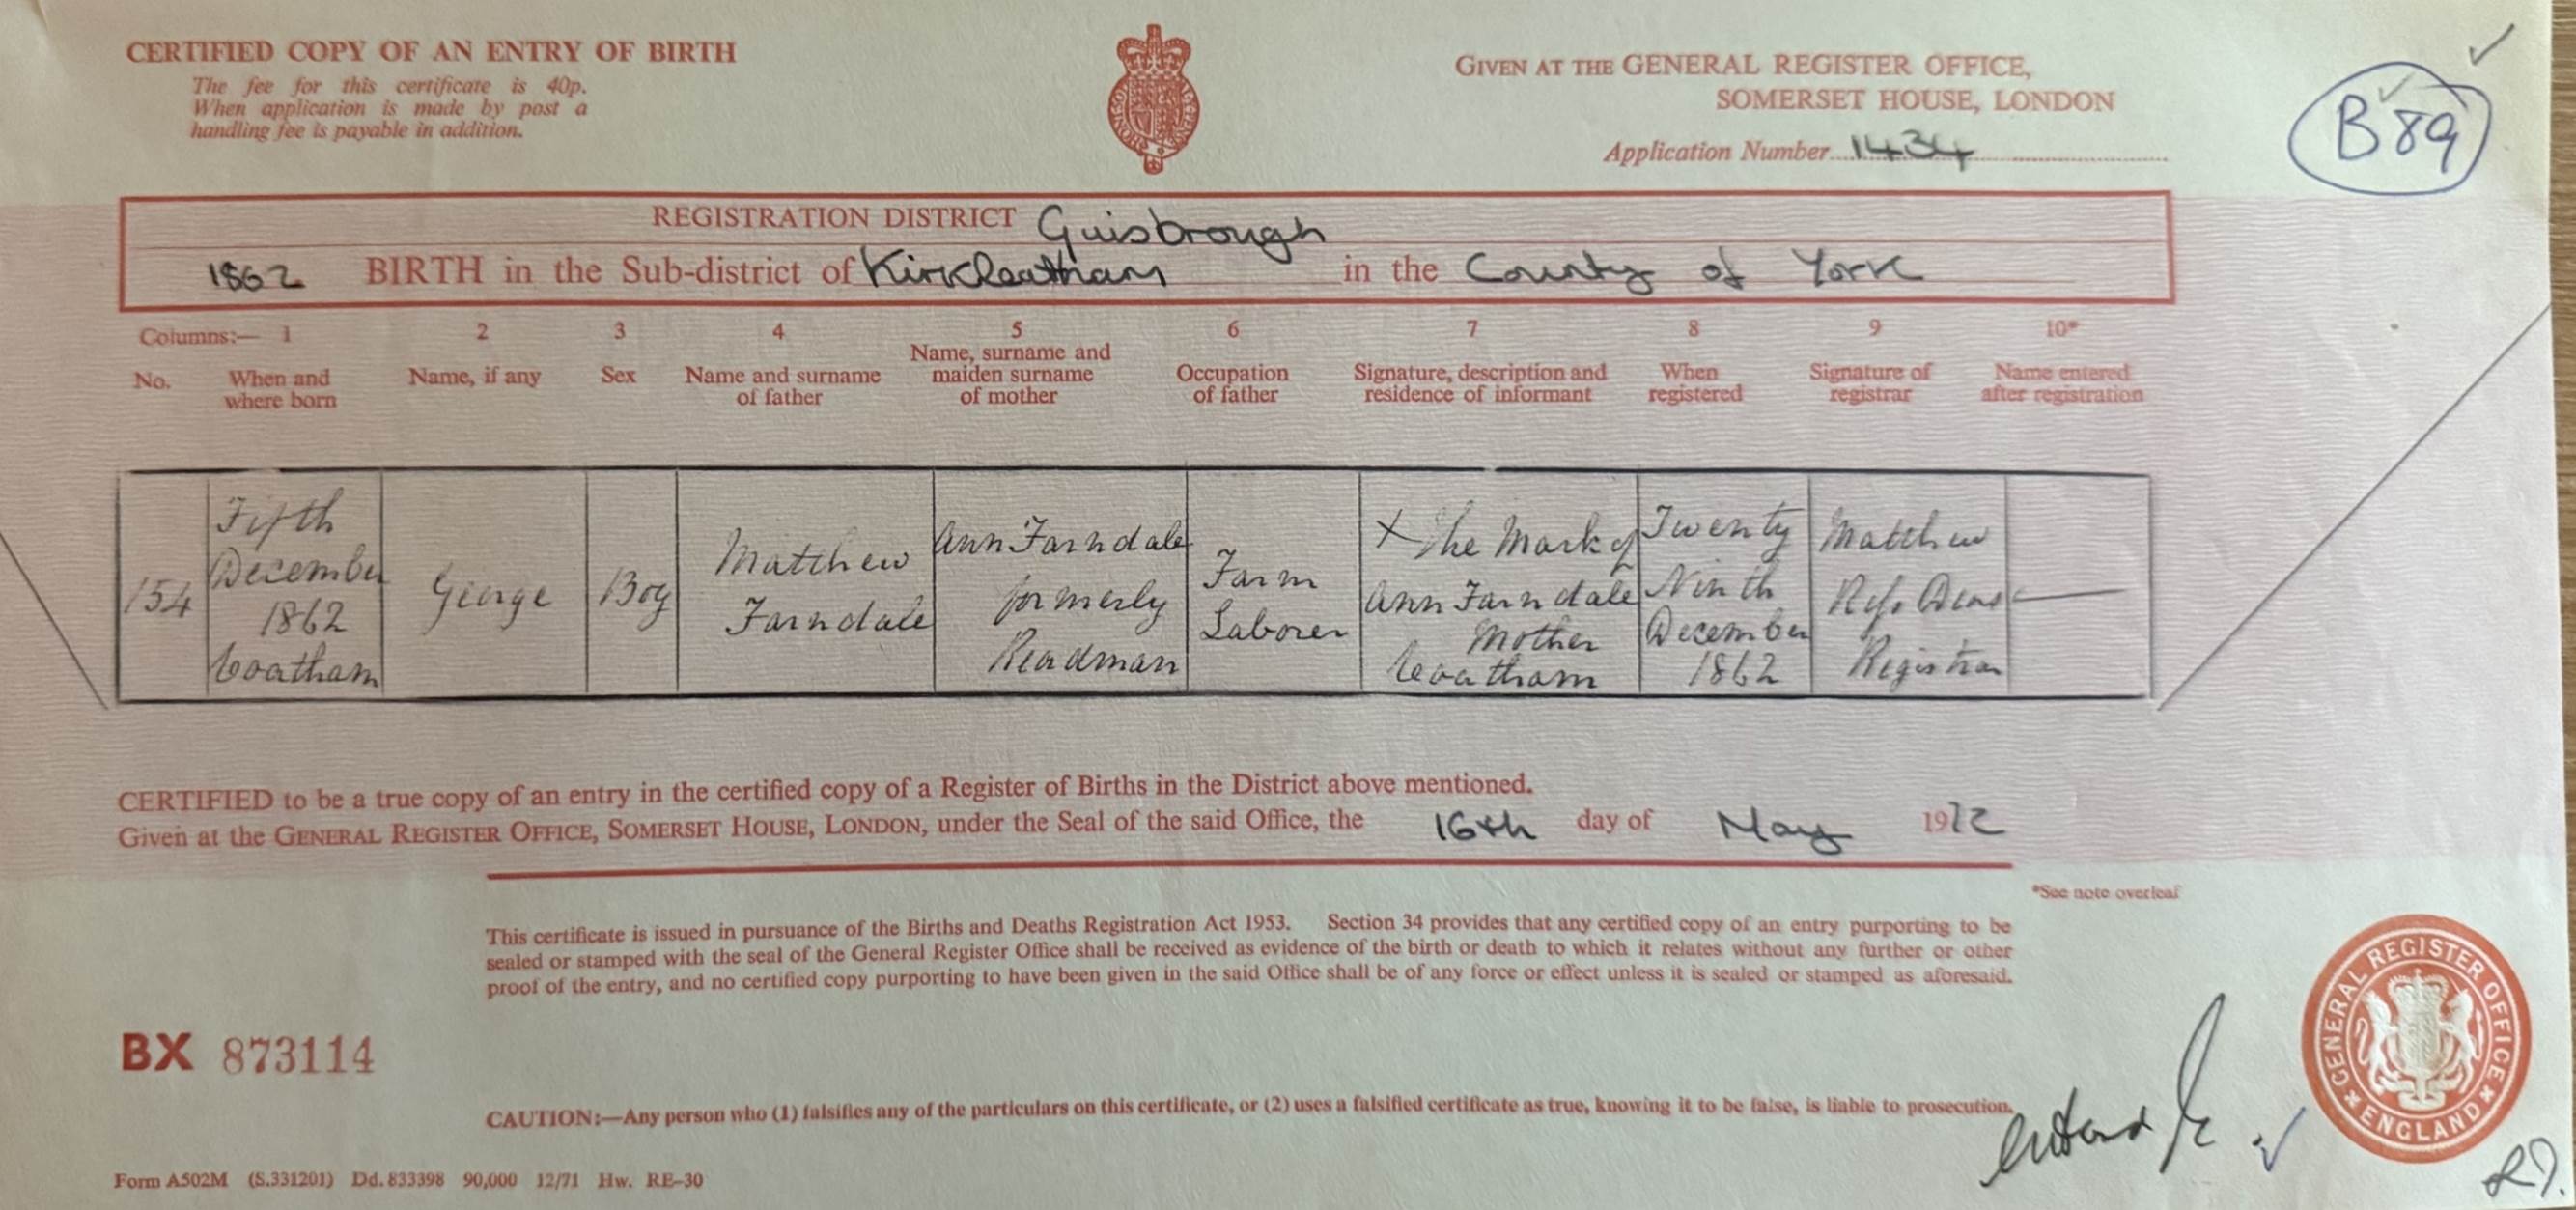 CERTIFIED COPY OF AN ENTRY OF BIRTH
The fee for this certificate is 40p.
When application is made by post a
handling fee is payable in addition.
GIVEN AT THE GENERAL REGISTER OFFICE,
SOMERSET HOUSE, LONDON
Application Number 1434
B 89
REGISTRATION DISTRICT Guisbrough
1862 BIRTH in the Sub-district of Kirkleatham in the County of York
Columns:— 1 2 3 4 5 6 7 8 9 10*
No.
When and
where born
Name, if any
Sex
Name and surname
of father
Name, surname and
maiden surname
of mother
Occupation
of father
Signature, description and
residence of informant
When
registered
Signature of
registrar
Name entered
after registration
154
Fifth
December
1862
Coatham
George
Boy
Matthew
Farndale
Ann Farndale
formerly
Readman
Farm
Laborer
X The Mark of
Ann Farndale
Mother
Coatham
Twenty
Ninth
December
1862
Matthew
Registrar
CERTIFIED to be a true copy of an entry in the certified copy of a Register of Births in the District above mentioned.
Given at the GENERAL REGISTER OFFICE, SOMERSET HOUSE, LONDON, under the Seal of the said Office, the 16th day of May 1972
*See note overleaf
This certificate is issued in pursuance of the Births and Deaths Registration Act 1953. Section 34 provides that any certified copy of an entry purporting to be
sealed or stamped with the seal of the General Register Office shall be received as evidence of the birth or death to which it relates without any further or other
proof of the entry, and no certified copy purporting to have been given in the said Office shall be of any force or effect unless it is sealed or stamped as aforesaid.
BX 873114
CAUTION:—Any person who (1) falsifies any of the particulars on this certificate, or (2) uses a falsified certificate as true, knowing it to be false, is liable to prosecution.
GENERAL REGISTER OFFICE
ENGLAND
Form A502M (S.331201) Dd. 833398 90,000 12/71 Hw. RE-30